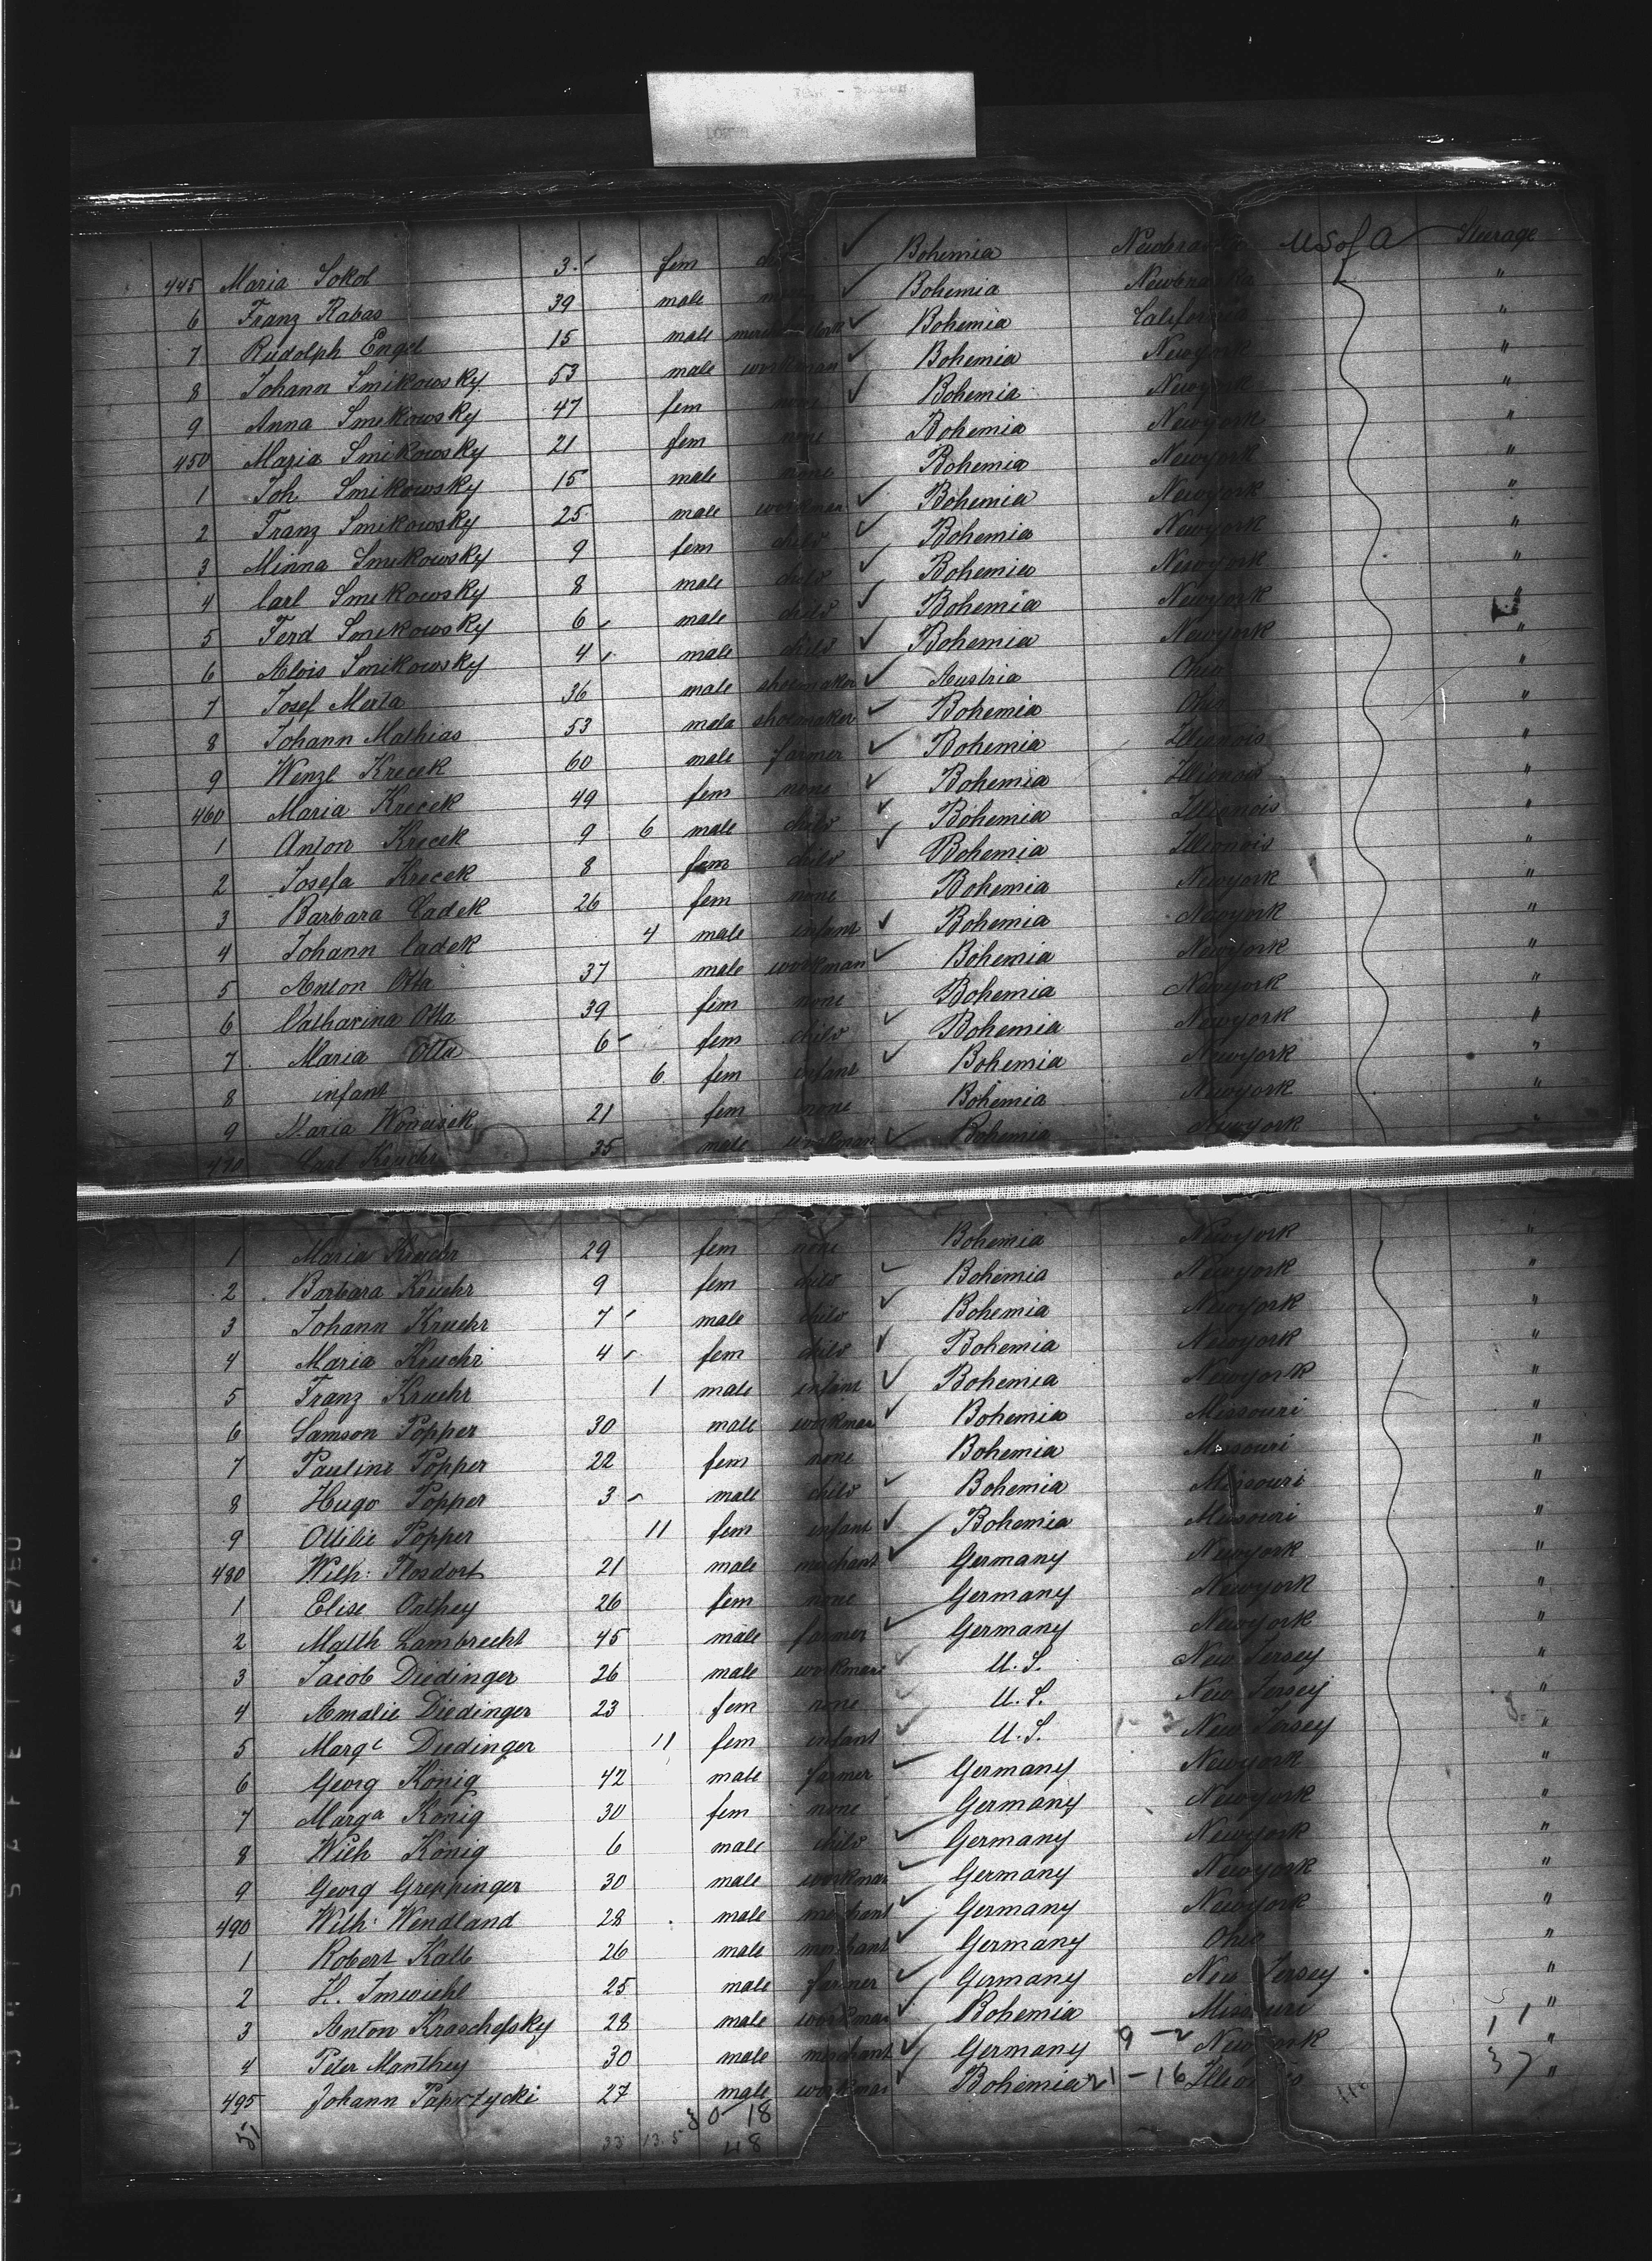 445 Maria Sokol 3 fem ✓ Bohemia U S of A Steerage
6 Franz Rabas 39 male ✓ Bohemia Newbraska "
7 Rudolph Engel 15 male ✓ Bohemia California "
8 Johann Smikowsky 53 male workman ✓ Bohemia Newyork "
9 Anna Smikowsky 47 fem none ✓ Bohemia Newyork "
450 Maria Smikowsky 21 fem none Bohemia Newyork "
1 Joh Smikowsky 15 male none Bohemia Newyork "
2 Franz Smikowsky 25 male workman ✓ Bohemia Newyork "
3 Minna Smikowsky 9 fem child ✓ Bohemia Newyork "
4 Carl Smikowsky 8 male child ✓ Bohemia Newyork "
5 Ferd Smikowsky 6 male child ✓ Bohemia Newyork "
6 Alois Smikowsky 4 male child ✓ Bohemia Newyork "
7 Josef Merta 36 male shoemaker ✓ Austria Ohio "
8 Johann Mathias 53 male shoemaker ✓ Bohemia Ohio "
9 Wenzl Krecek 60 male farmer ✓ Bohemia Illionois "
460 Maria Krecek 49 fem none ✓ Bohemia Illionois "
1 Anton Krecek 9 6 male child ✓ Bohemia Illionois "
2 Josefa Krecek 8 fem child ✓ Bohemia Illionois "
3 Barbara Cadek 26 fem none Bohemia Newyork "
4 Johann Cadek 4 male infant ✓ Bohemia Newyork "
5 Anton Otta 37 male workman ✓ Bohemia Newyork "
6 Catharina Otta 39 fem none Bohemia Newyork "
7 Maria Otta 6 fem child ✓ Bohemia Newyork "
8 infant 6 fem infant ✓ Bohemia Newyork "
9 Maria 21 fem none Bohemia Newyork "
470 Carl Kruchr 35 male workman ✓ Bohemia Newyork "
1 Maria Kruehr 29 fem none Bohemia Newyork "
2 Barbara Kruehr 9 fem child ✓ Bohemia Newyork "
3 Johann Kruehr 7 male child ✓ Bohemia Newyork "
4 Maria Kruehr 4 fem child ✓ Bohemia Newyork "
5 Franz Kruehr 1 male infant ✓ Bohemia Newyork "
6 Samson Popper 30 male workman ✓ Bohemia Missouri "
7 Pauline Popper 22 fem none Bohemia Missouri "
8 Hugo Popper 3 male child ✓ Bohemia Missouri "
9 Ottilie Popper 11 fem infant ✓ Bohemia Missouri "
480 Wilh: Flosdorf 21 male merchant ✓ Germany Newyork "
1 Elise Orthey 26 fem none Germany Newyork "
2 Matth Lambrecht 45 male farmer ✓ Germany Newyork "
3 Jacob Diedinger 26 male workman ✓ U.S. New Jersey "
4 Amalie Diedinger 23 fem none ✓ U.S. New Jersey "
5 Margt Diedinger 11 fem infant ✓ U.S. New Jersey "
6 Georg König 42 male farmer ✓ Germany Newyork "
7 Marga König 30 fem none Germany Newyork "
8 Wilh König 6 male child ✓ Germany Newyork "
9 Georg Greppinger 30 male workman ✓ Germany Newyork "
490 Wilh: Wendland 28 male merchant ✓ Germany Newyork "
1 Robert Kalb 26 male merchant ✓ Germany Ohio "
2 H. Imwiehl 25 male farmer ✓ Germany New Jersey "
3 Anton Kraschefsky 28 male workman ✓ Bohemia Missouri "
4 Peter Manthey 30 male merchant ✓ Germany Newyork "
495 Johann Paprzycki 27 male workman ✓ Bohemia Illionois "
51 33 13.5 0 18
48